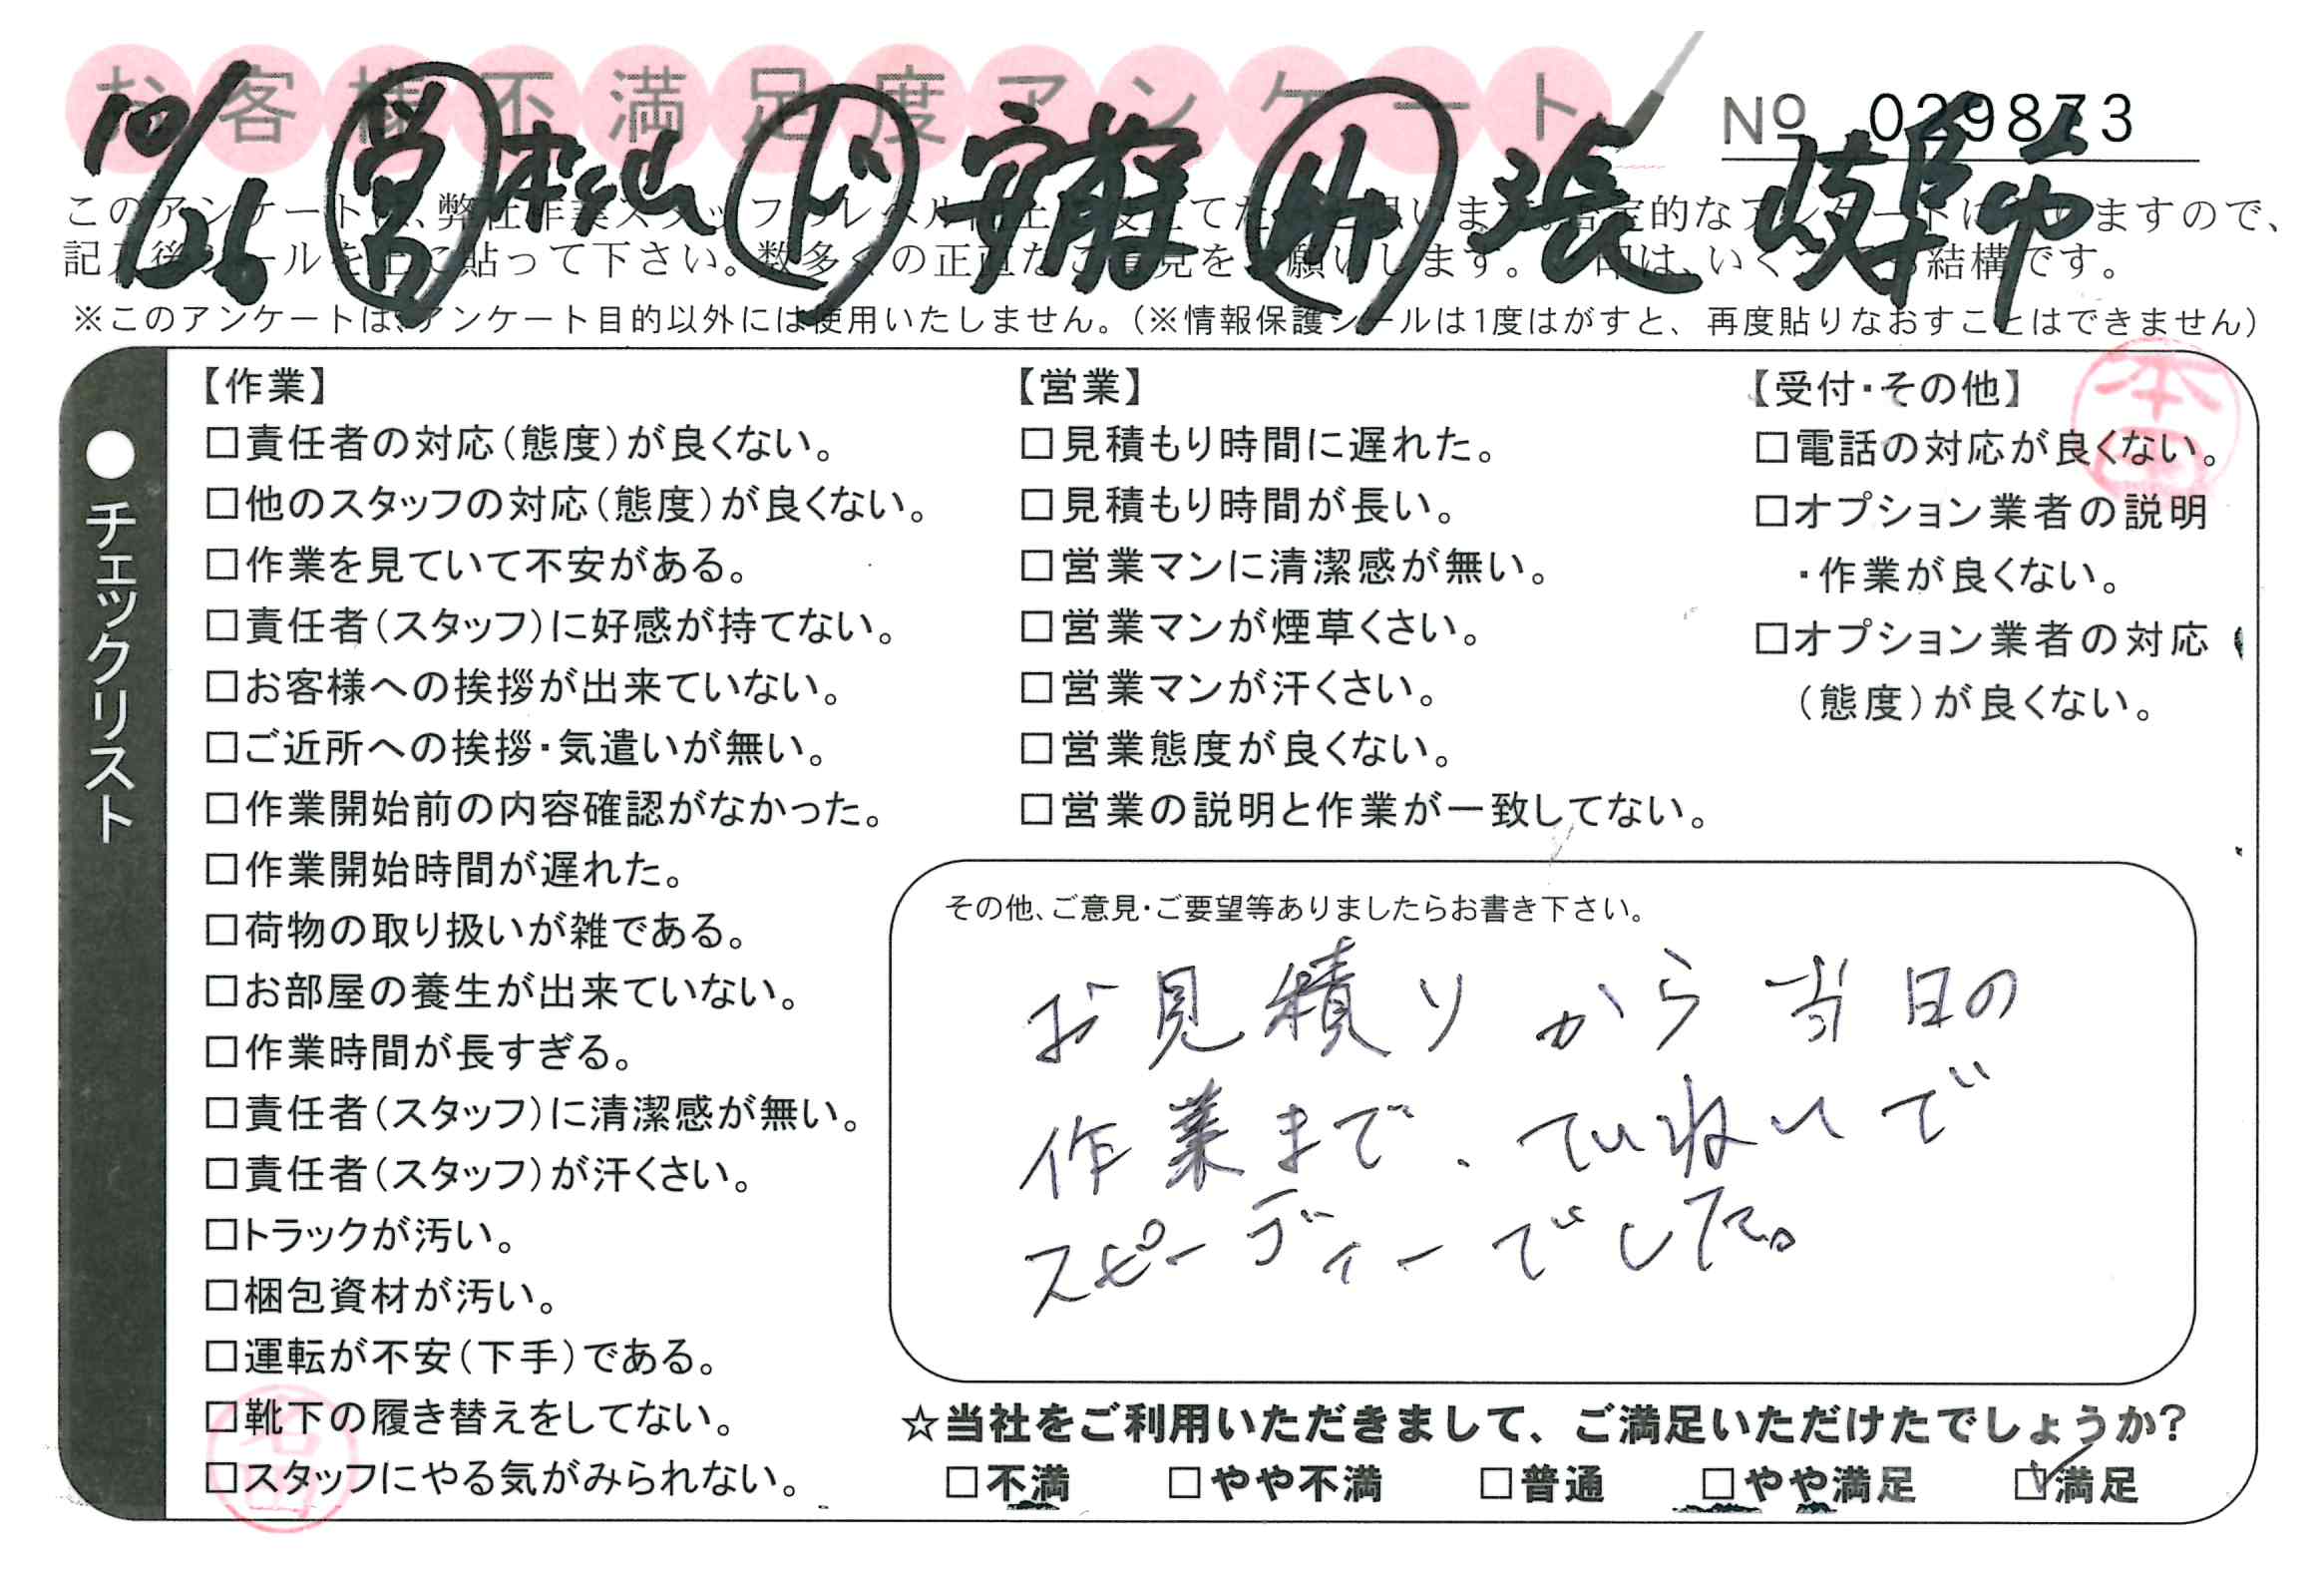 お客様不満足度アンケート
No 029873
10/26 営 松山 ド 安藤 助 張 岐阜 上中
このアンケートは、弊社作業スタッフのレベル向上に役立てたいと思います。否定的なアンケートになりますので、
記入後シールを上に貼って下さい。数多くの正直なご意見をお願いします。 印は、いくつでも結構です。
※このアンケートは、アンケート目的以外には使用いたしません。（※情報保護シールは1度はがすと、再度貼りなおすことはできません）
●チェックリスト
【作業】
□責任者の対応（態度）が良くない。
□他のスタッフの対応（態度）が良くない。
□作業を見ていて不安がある。
□責任者（スタッフ）に好感が持てない。
□お客様への挨拶が出来ていない。
□ご近所への挨拶・気遣いが無い。
□作業開始前の内容確認がなかった。
□作業開始時間が遅れた。
□荷物の取り扱いが雑である。
□お部屋の養生が出来ていない。
□作業時間が長すぎる。
□責任者（スタッフ）に清潔感が無い。
□責任者（スタッフ）が汗くさい。
□トラックが汚い。
□梱包資材が汚い。
□運転が不安（下手）である。
□靴下の履き替えをしてない。
□スタッフにやる気がみられない。
【営業】
□見積もり時間に遅れた。
□見積もり時間が長い。
□営業マンに清潔感が無い。
□営業マンが煙草くさい。
□営業マンが汗くさい。
□営業態度が良くない。
□営業の説明と作業が一致してない。
【受付・その他】
□電話の対応が良くない。
□オプション業者の説明
・作業が良くない。
□オプション業者の対応
（態度）が良くない。
本田
その他、ご意見・ご要望等ありましたらお書き下さい。
お見積りから当日の
作業まで、ていねいで
スピーディーでした。
☆当社をご利用いただきまして、ご満足いただけたでしょうか？
□不満 □やや不満 □普通 □やや満足 ☑満足